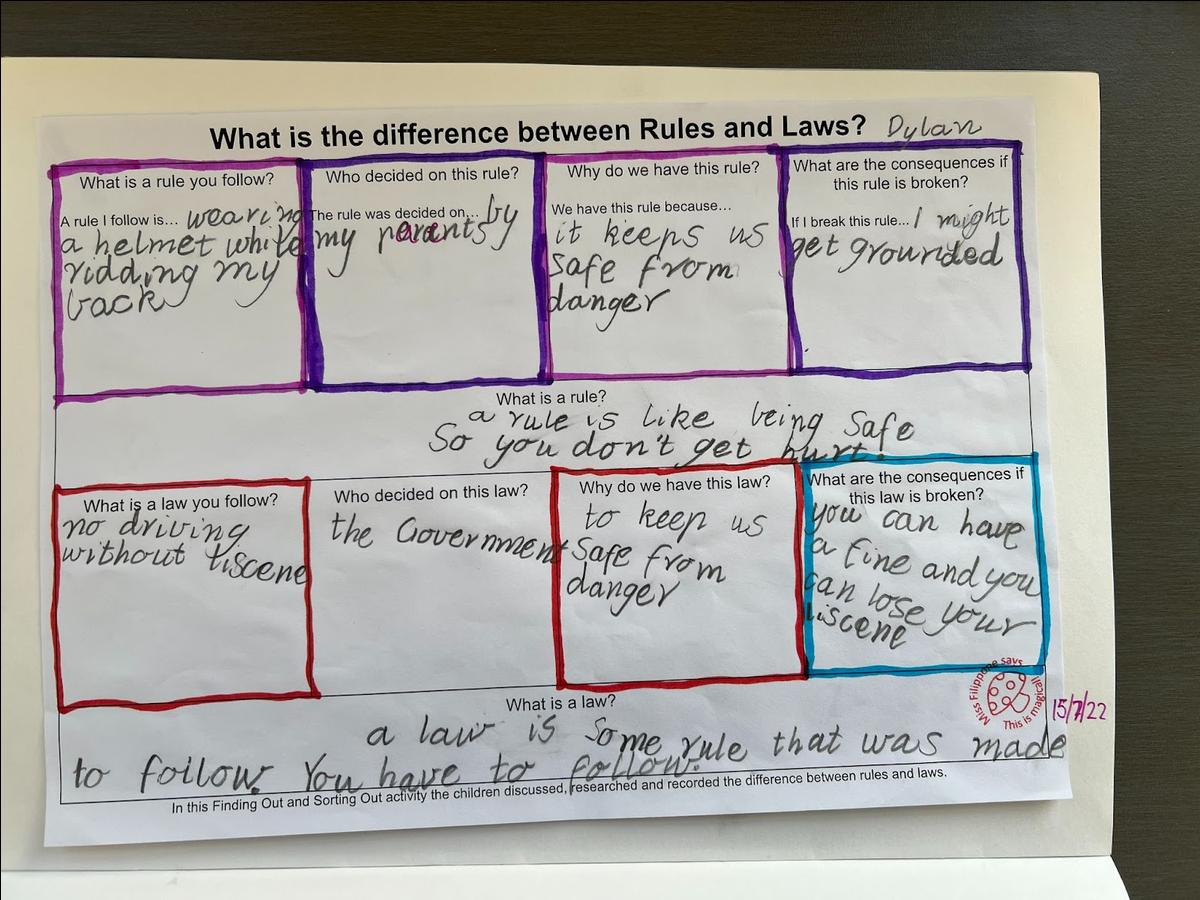 What is the difference between Rules and Laws? Dylan
What is a rule you follow?
A rule I follow is... wearing
a helmet while
ridding my
back
Who decided on this rule?
The rule was decided on... by
my parents
Why do we have this rule?
We have this rule because...
it keeps us
safe from
danger
What are the consequences if
this rule is broken?
If I break this rule... I might
get grounded
What is a rule?
a rule is like being safe
So you don't get hurt.
What is a law you follow?
no driving
without liscene
Who decided on this law?
the Government
Why do we have this law?
to keep us
Safe from
danger
What are the consequences if
this law is broken?
you can have
a fine and you
can lose your
liscene
What is a law?
a law is some rule that was made
to follow. You have to follow.
Miss Filippone says
This is magical!
15/7/22
In this Finding Out and Sorting Out activity the children discussed, researched and recorded the difference between rules and laws.